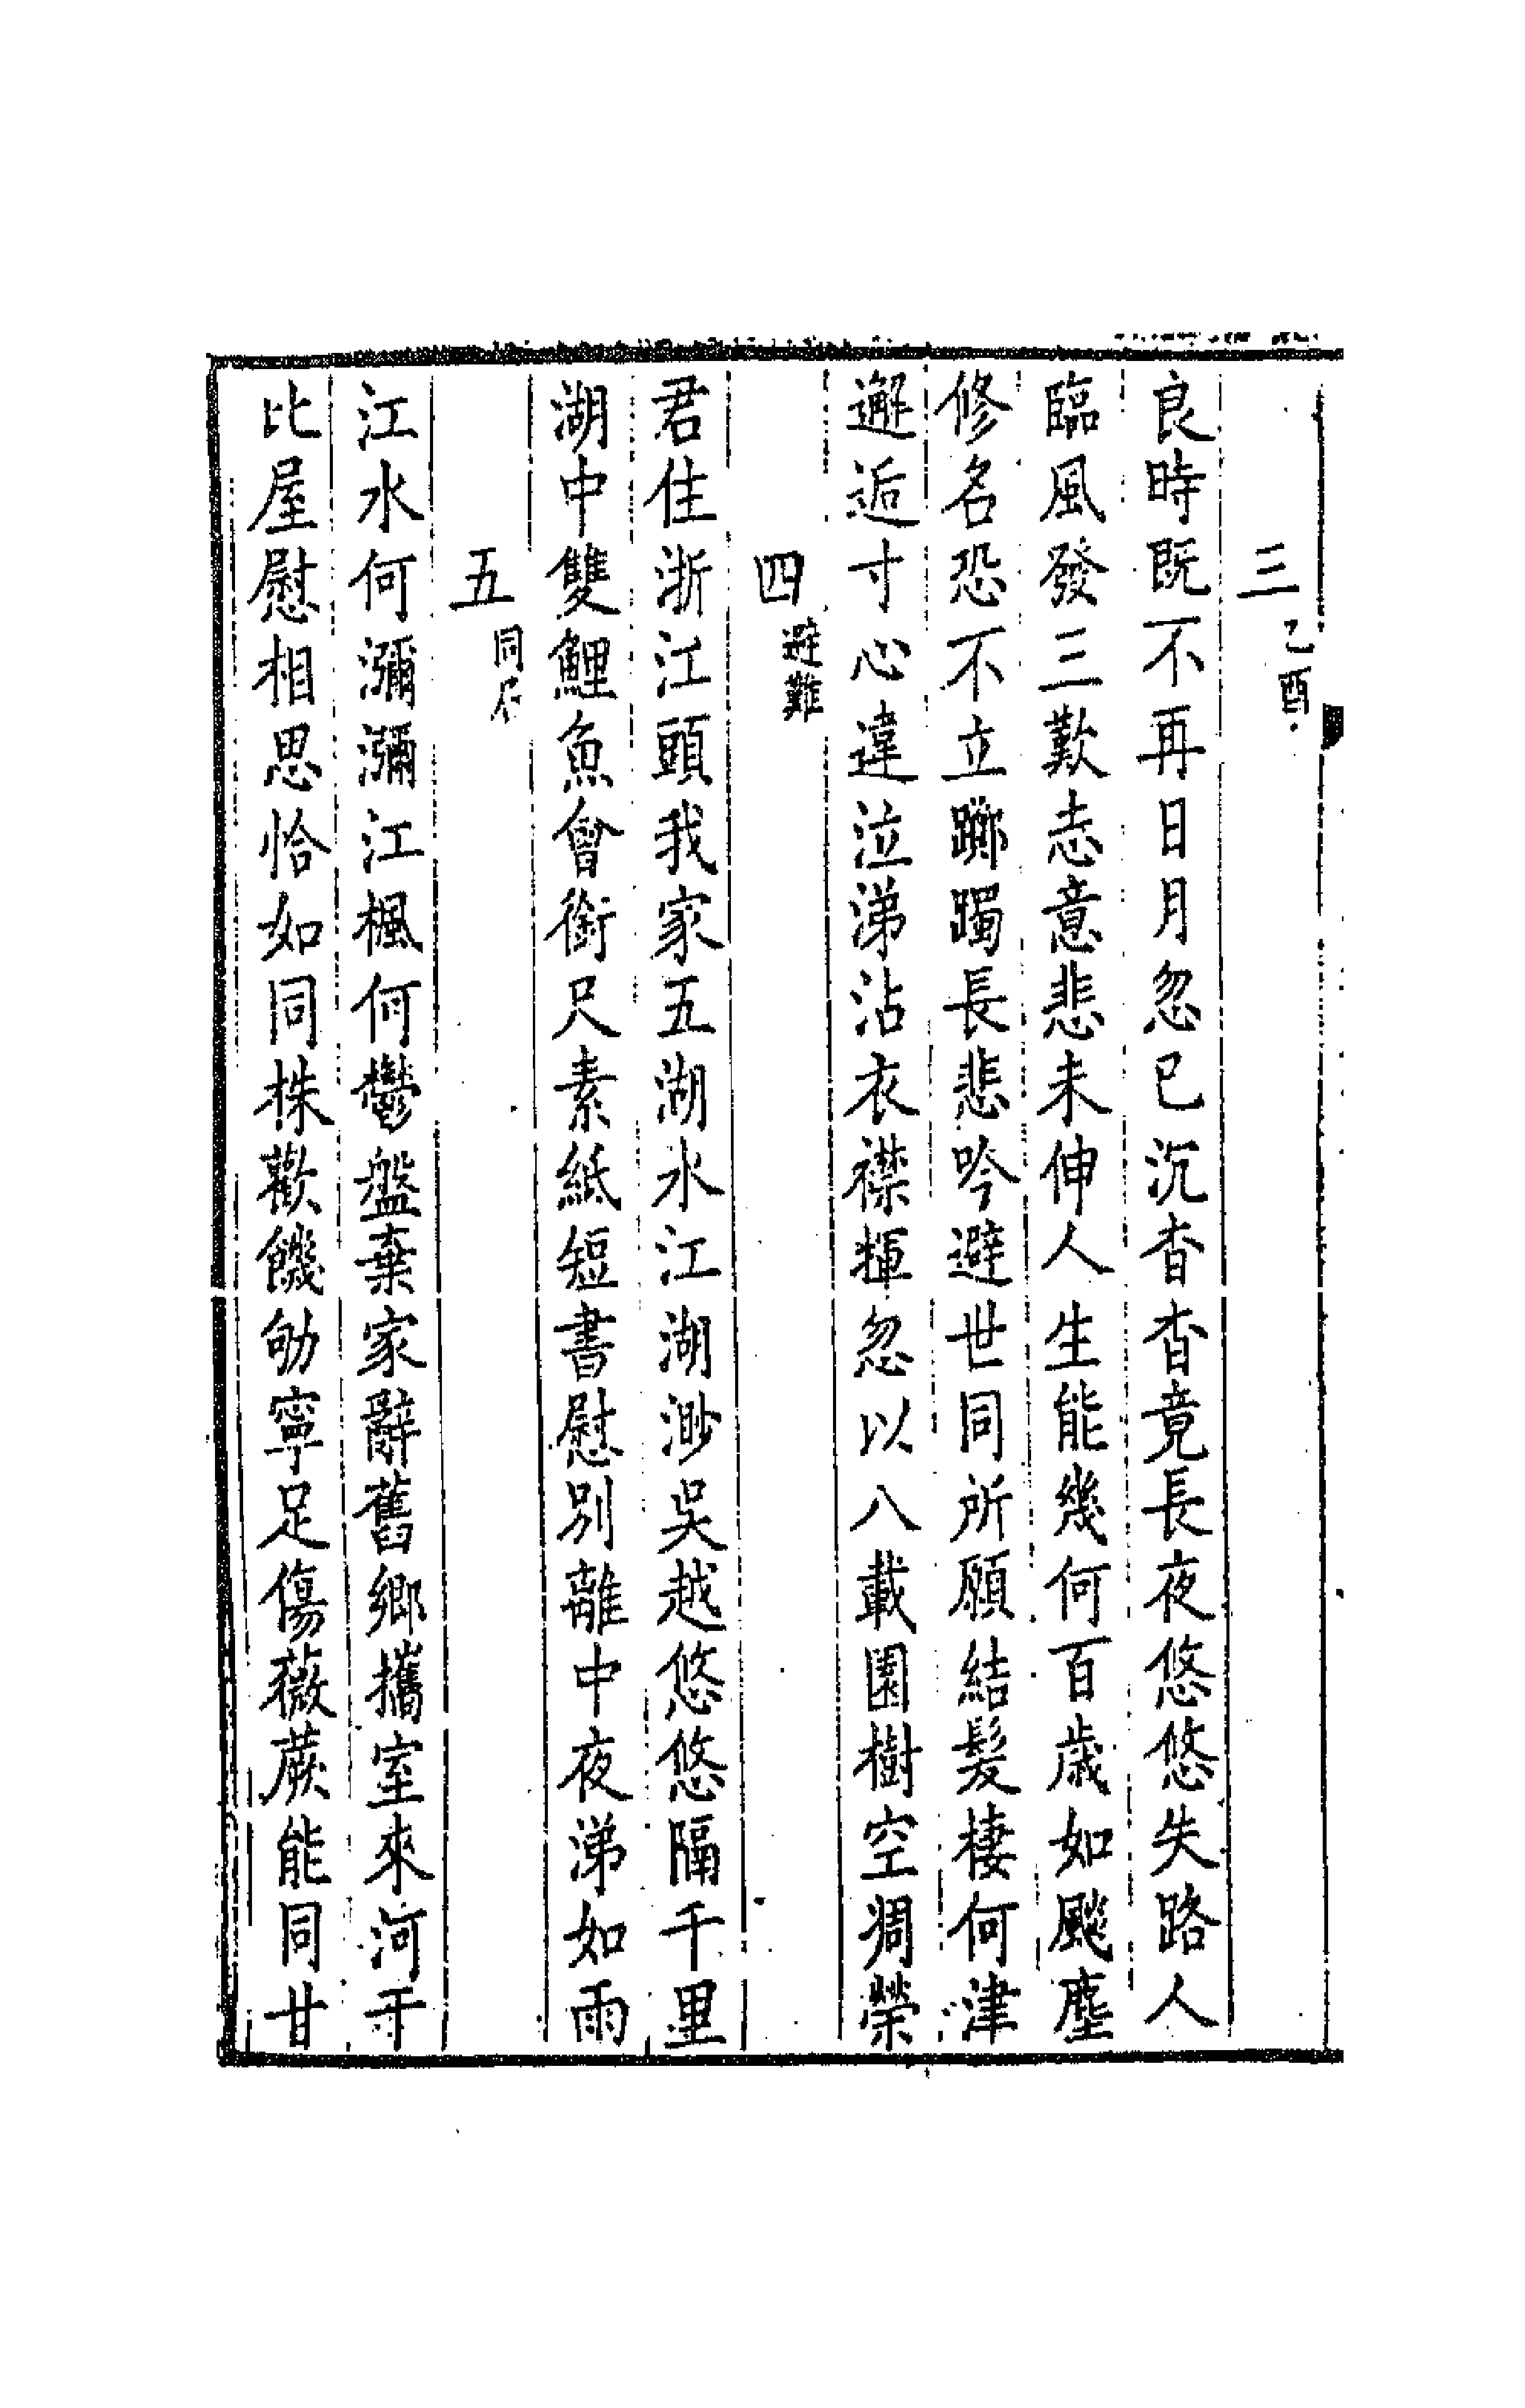 三乙酉
良時既不再日月忽已沉杳杳竟長夜悠悠失路人
臨風發三歎志意悲未伸人生能幾何百歲如颷塵
修名恐不立躑躅長悲吟避世同所願結髮棲何津
邂逅寸心違泣涕沾衣襟揮忽以八載園樹空凋榮
四避難
君住浙江頭我家五湖水江湖渺吳越悠悠隔千里
湖中雙鯉魚會銜尺素紙短書慰別離中夜涕如雨
五同
江水何瀰瀰江楓何鬱盤棄家辭舊鄉攜室來河干
比屋慰相思恰如同株歡饑劬寧足傷薇蕨能同甘